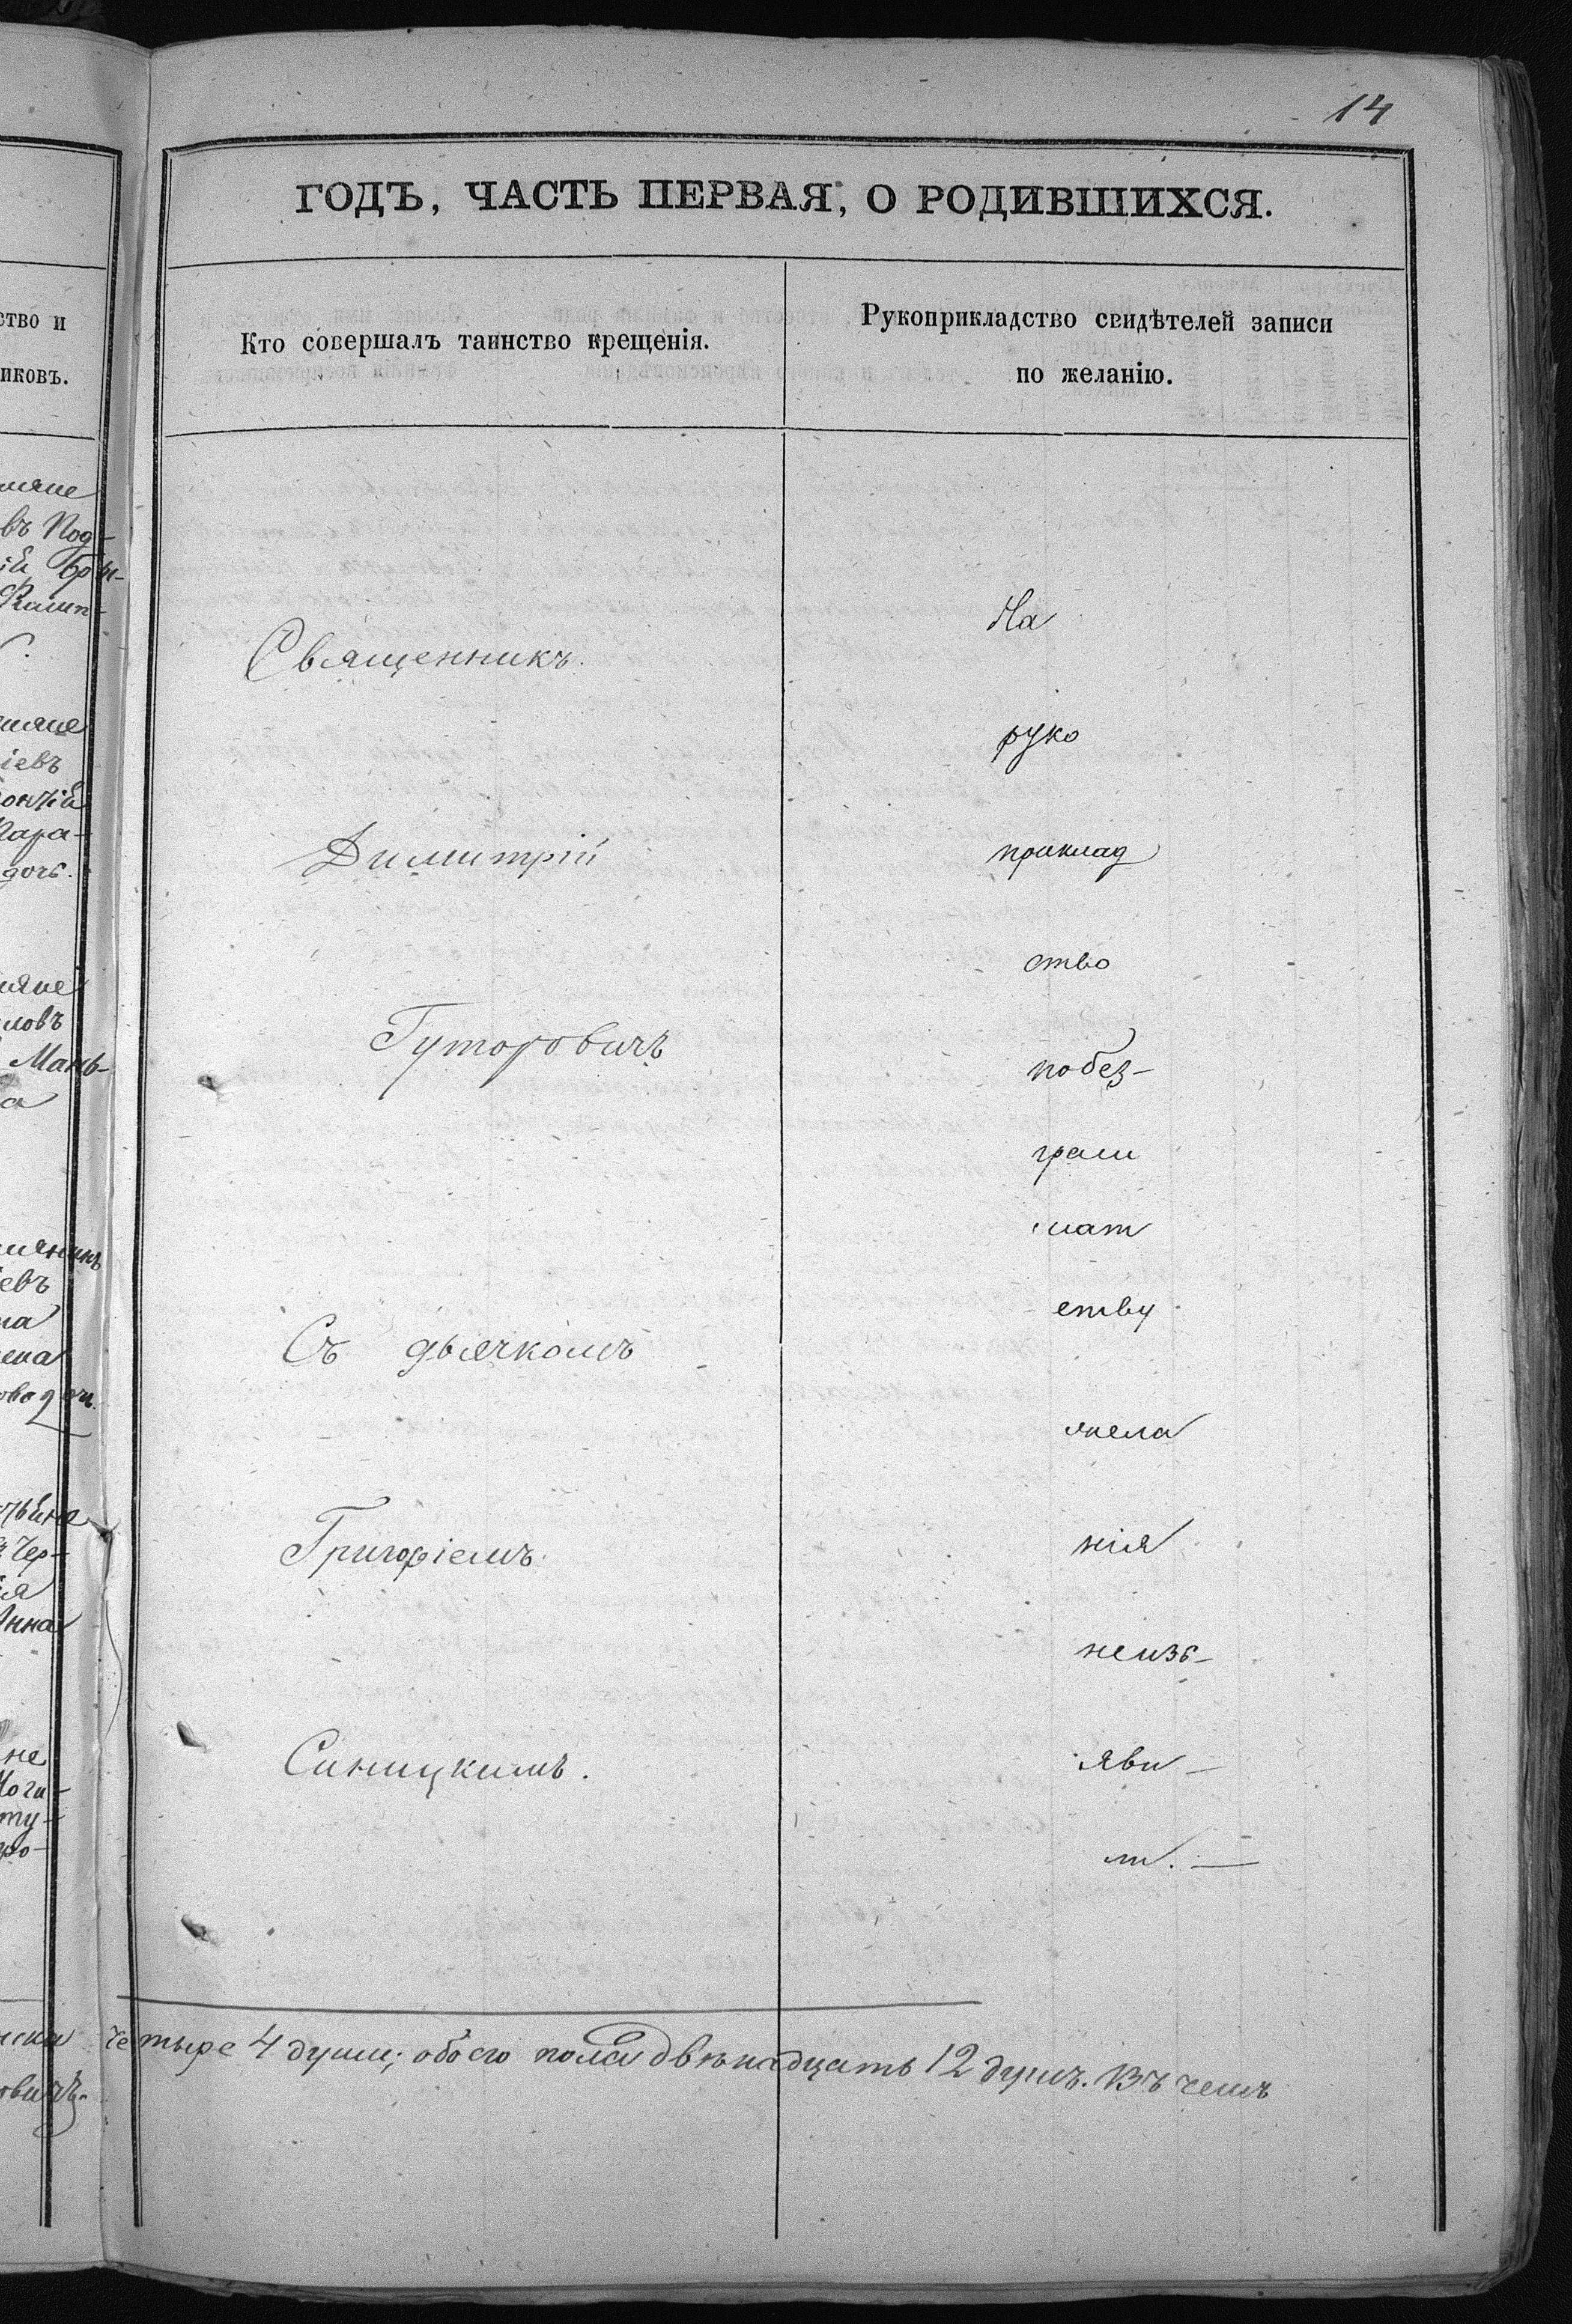 14
ГОДЪ, ЧАСТЬ ПЕРВАЯ, О РОДИВШИХСЯ.
Кто совершалъ таинство крещенія.
Рукоприкладство свидѣтелей записи
по желанію.
Священникъ.
Димитрій
Гуторовичъ
Съ дьячкомъ
Григоріемъ
Синицкимъ.
На
руко
приклад
ство
побез-
грам
мат
ству
жела
нія
неизъ-
яви-
ли.—
четыре 4 души; обоего пола двѣнадцать 12 душъ. Въ чемъ
ство и
иковъ.
въ Под-
іевъ
Кара-
дочь.
ловъ
Мань-
а
евъ
Чер-
ія
Анна
не
ту-
ро-
овичъ.